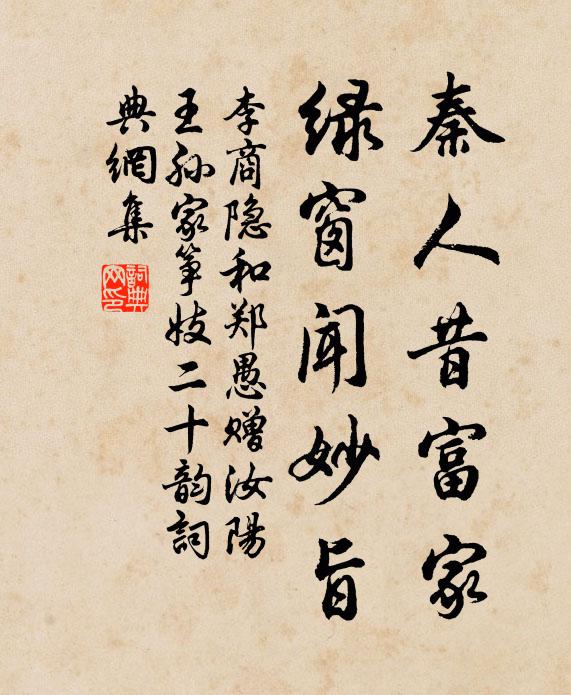 秦人昔富家
绿窗闻妙旨
李商隐和郑愚赠汝陽
王孙家筝妓二十韵詞
典網集
詞典網印